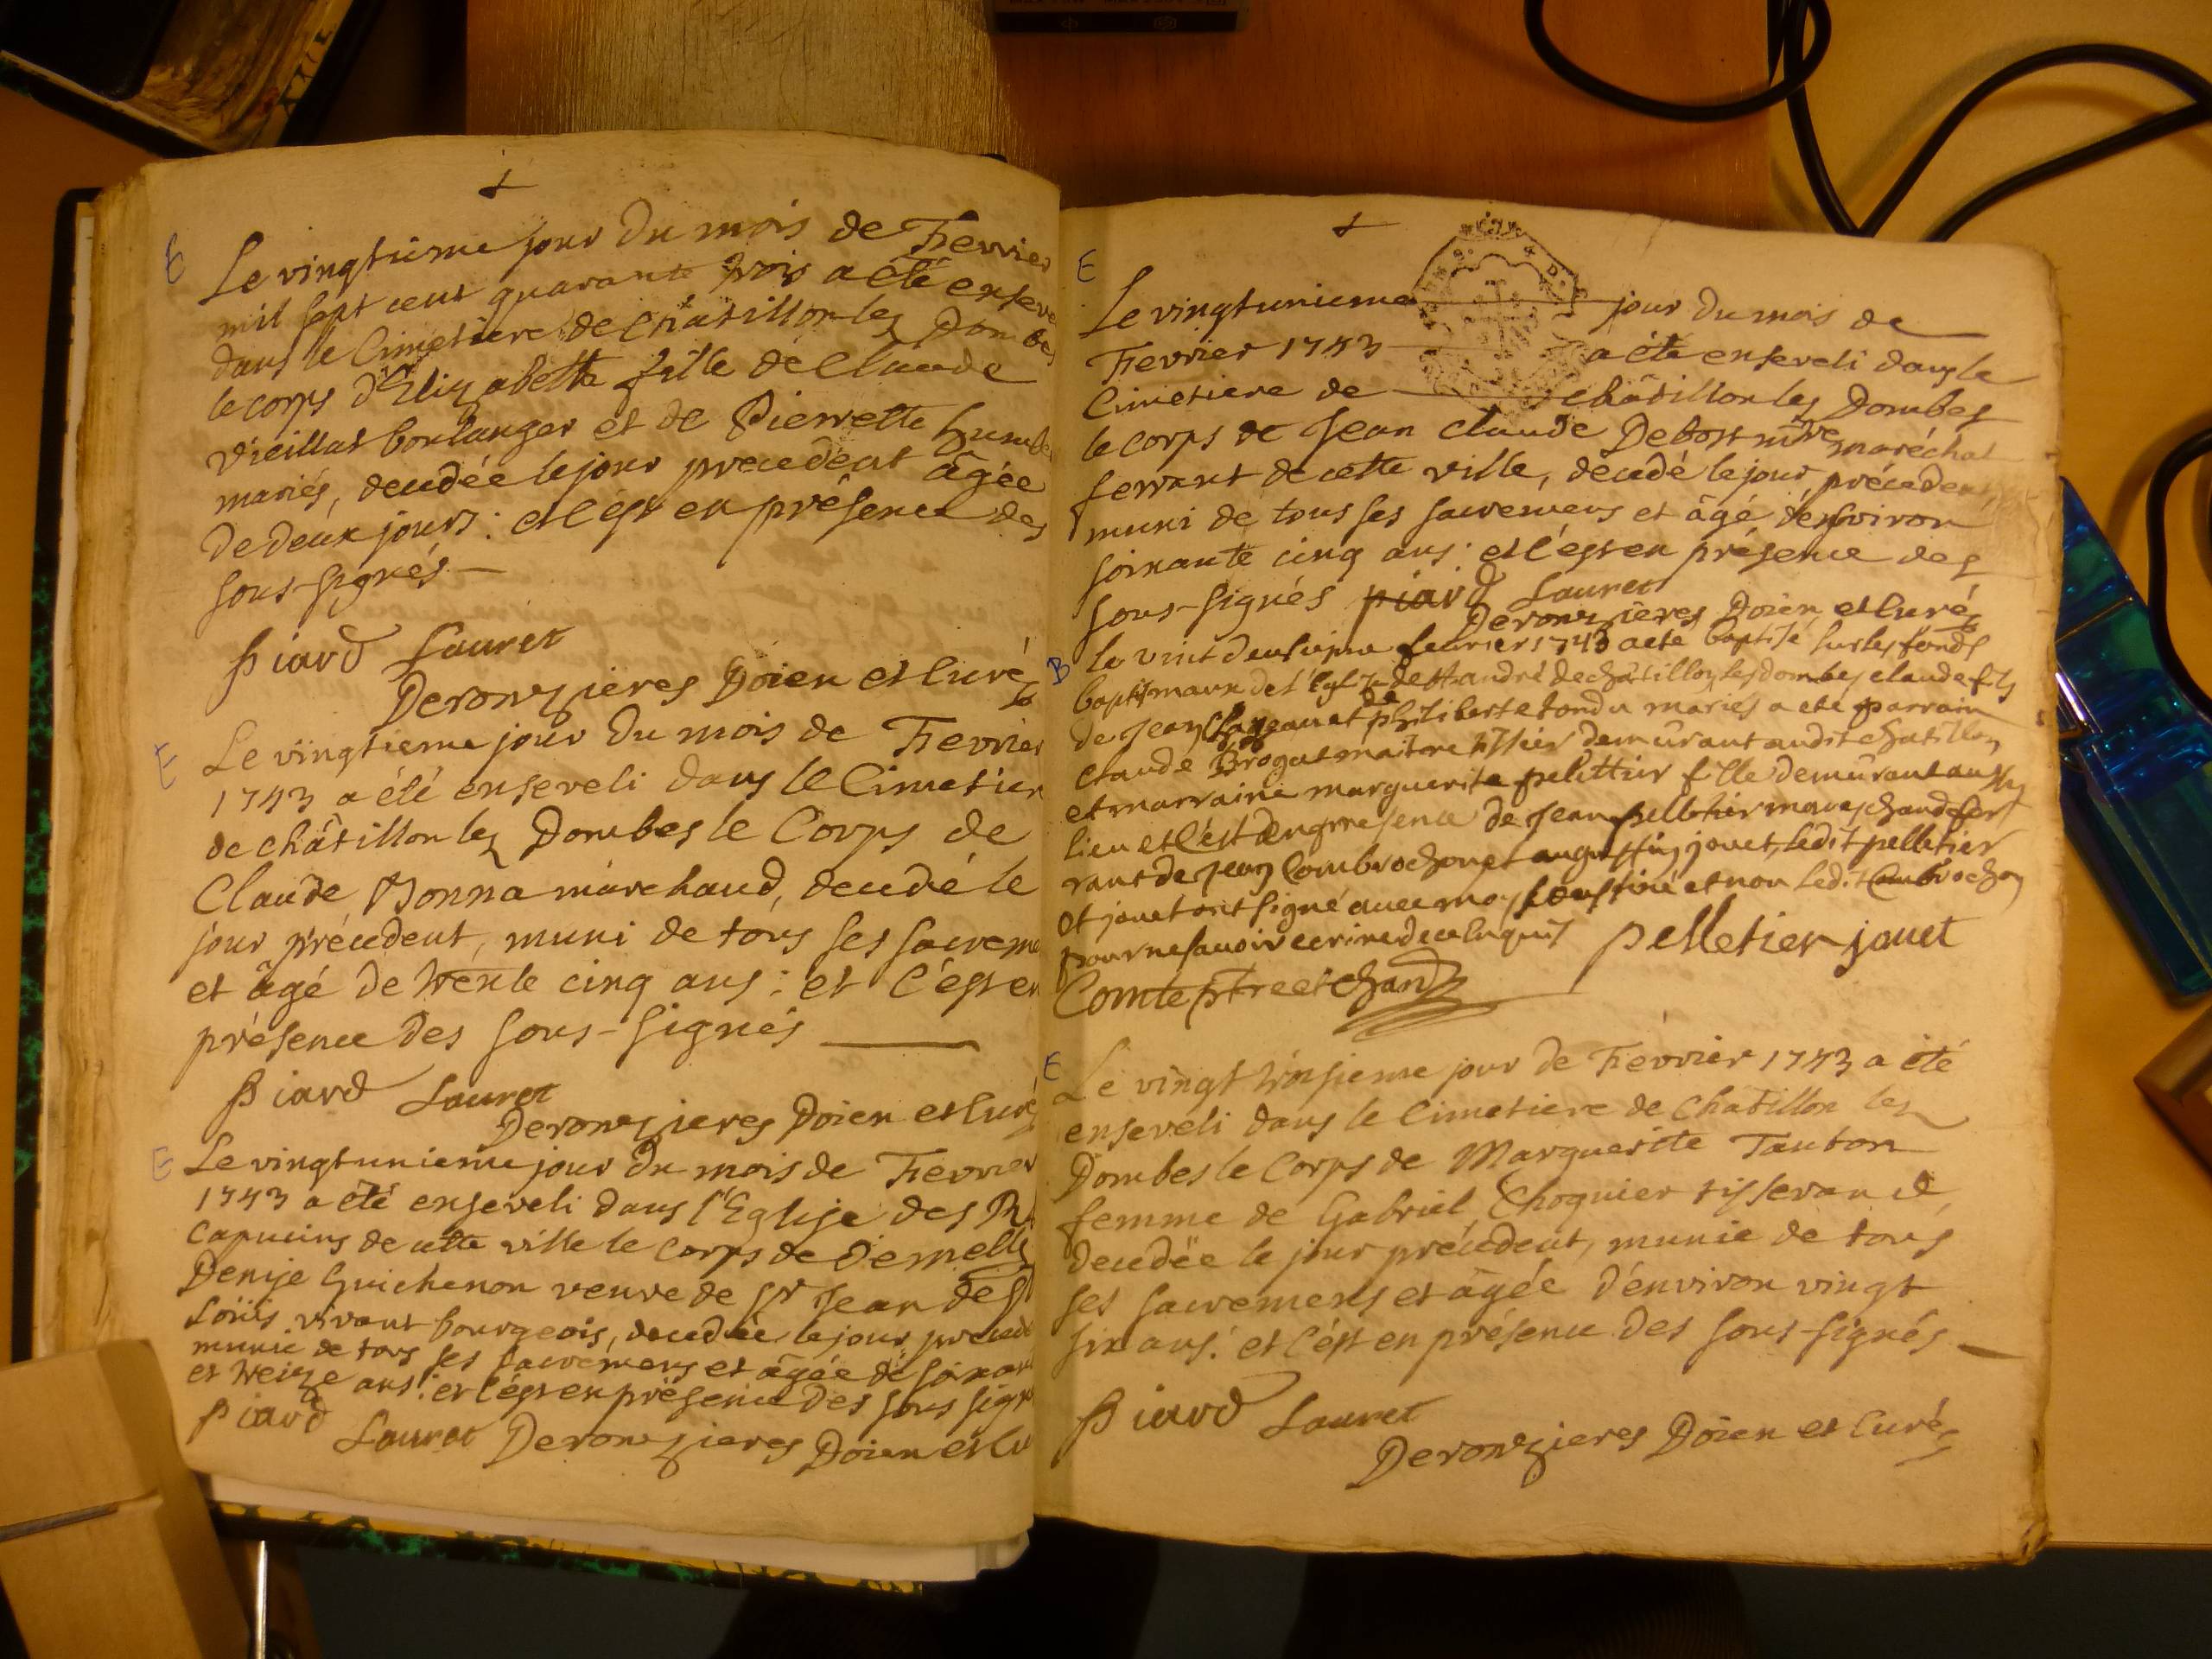 E
Le vingtième jour du mois de Fevrier
mil sept cent quarante trois a été enseve
dans le Cimetiere de Châtillon les Dombes
le corps d'Elizabeth fille de Claude
Vieillat boulanger et de Pierrette
mariés, decedée le jour precedent âgée
de deux jours : et c'est en présence des
sous-signés
Piard Lauret
Deronzieres Doien et Curé
E
Le vingtieme jour du mois de Fevrier
1743 a été enseveli dans le Cimetier
de châtillon les Dombes le Corps de
Claude Bonna marchand, decedé le
jour précedent, muni de tous ses sacreme
et âgé de trente cinq ans : et c'est en
présence des sous-signés
Piard Lauret
Deronzieres Doien et Curé
E
Le vingtunieme jour du mois de Fevrier
1743 a été enseveli dans l'Eglise des
Capucins de cette ville le corps de Demelle
Denise Guichenon veuve de Sr Jean
Loüis vivant bourgeois, decedée le jour precede
munie de tous ses sacremens et âgée de soixan
et treize ans : et c'est en présence des sous sign
Piard
Lauret Deronzieres Doien et Cu
E
Le vingtunieme jour du mois de
Fevrier 1743 a été enseveli dans le
Cimetiere de châtillon les Dombes
le corps de Jean Claude Debost mtre maréchal
ferrant de cette ville, decedé le jour précedent
muni de tous ses sacremens et âgé d'environ
soixante cinq ans : et c'est en présence des
sous-signés piard Lauret
Deronzieres Doien et Curé
B
Le vint deusieme feurier 1743 a ete baptisé sur les fonds
baptismaux de l'Eglize de st andré de châtillon les dombes claude fils
de Jean et de philiberte tondu mariés a ete parrain
claude Brogat maitre tissier demurant audit chatillon
et marraine marguerite pelettier fille demurant aussy
lieu et c'est en presence de Jean pelletier mareschand fer
rant de Jean Combrochon et augustin jouet, ledit pelletier
et jouet ont signé avec moy soussigné et non ledit Combrochon
pour ne savoir ecrire de ce enquis pelletier jouet
Comte ptre et chan
E
Le vingt troisieme jour de Fevrier 1743 a été
enseveli dans le Cimetiere de Chatillon les
Dombes le Corps de Marguerite Tanton
femme de Gabriel Choguier tisserand,
decedée le jour précedent, munie de tous
ses sacremens et âgée d'environ vingt
six ans : et c'est en présence des sous-signés
Piard Lauret
Deronzieres Doien et Curé